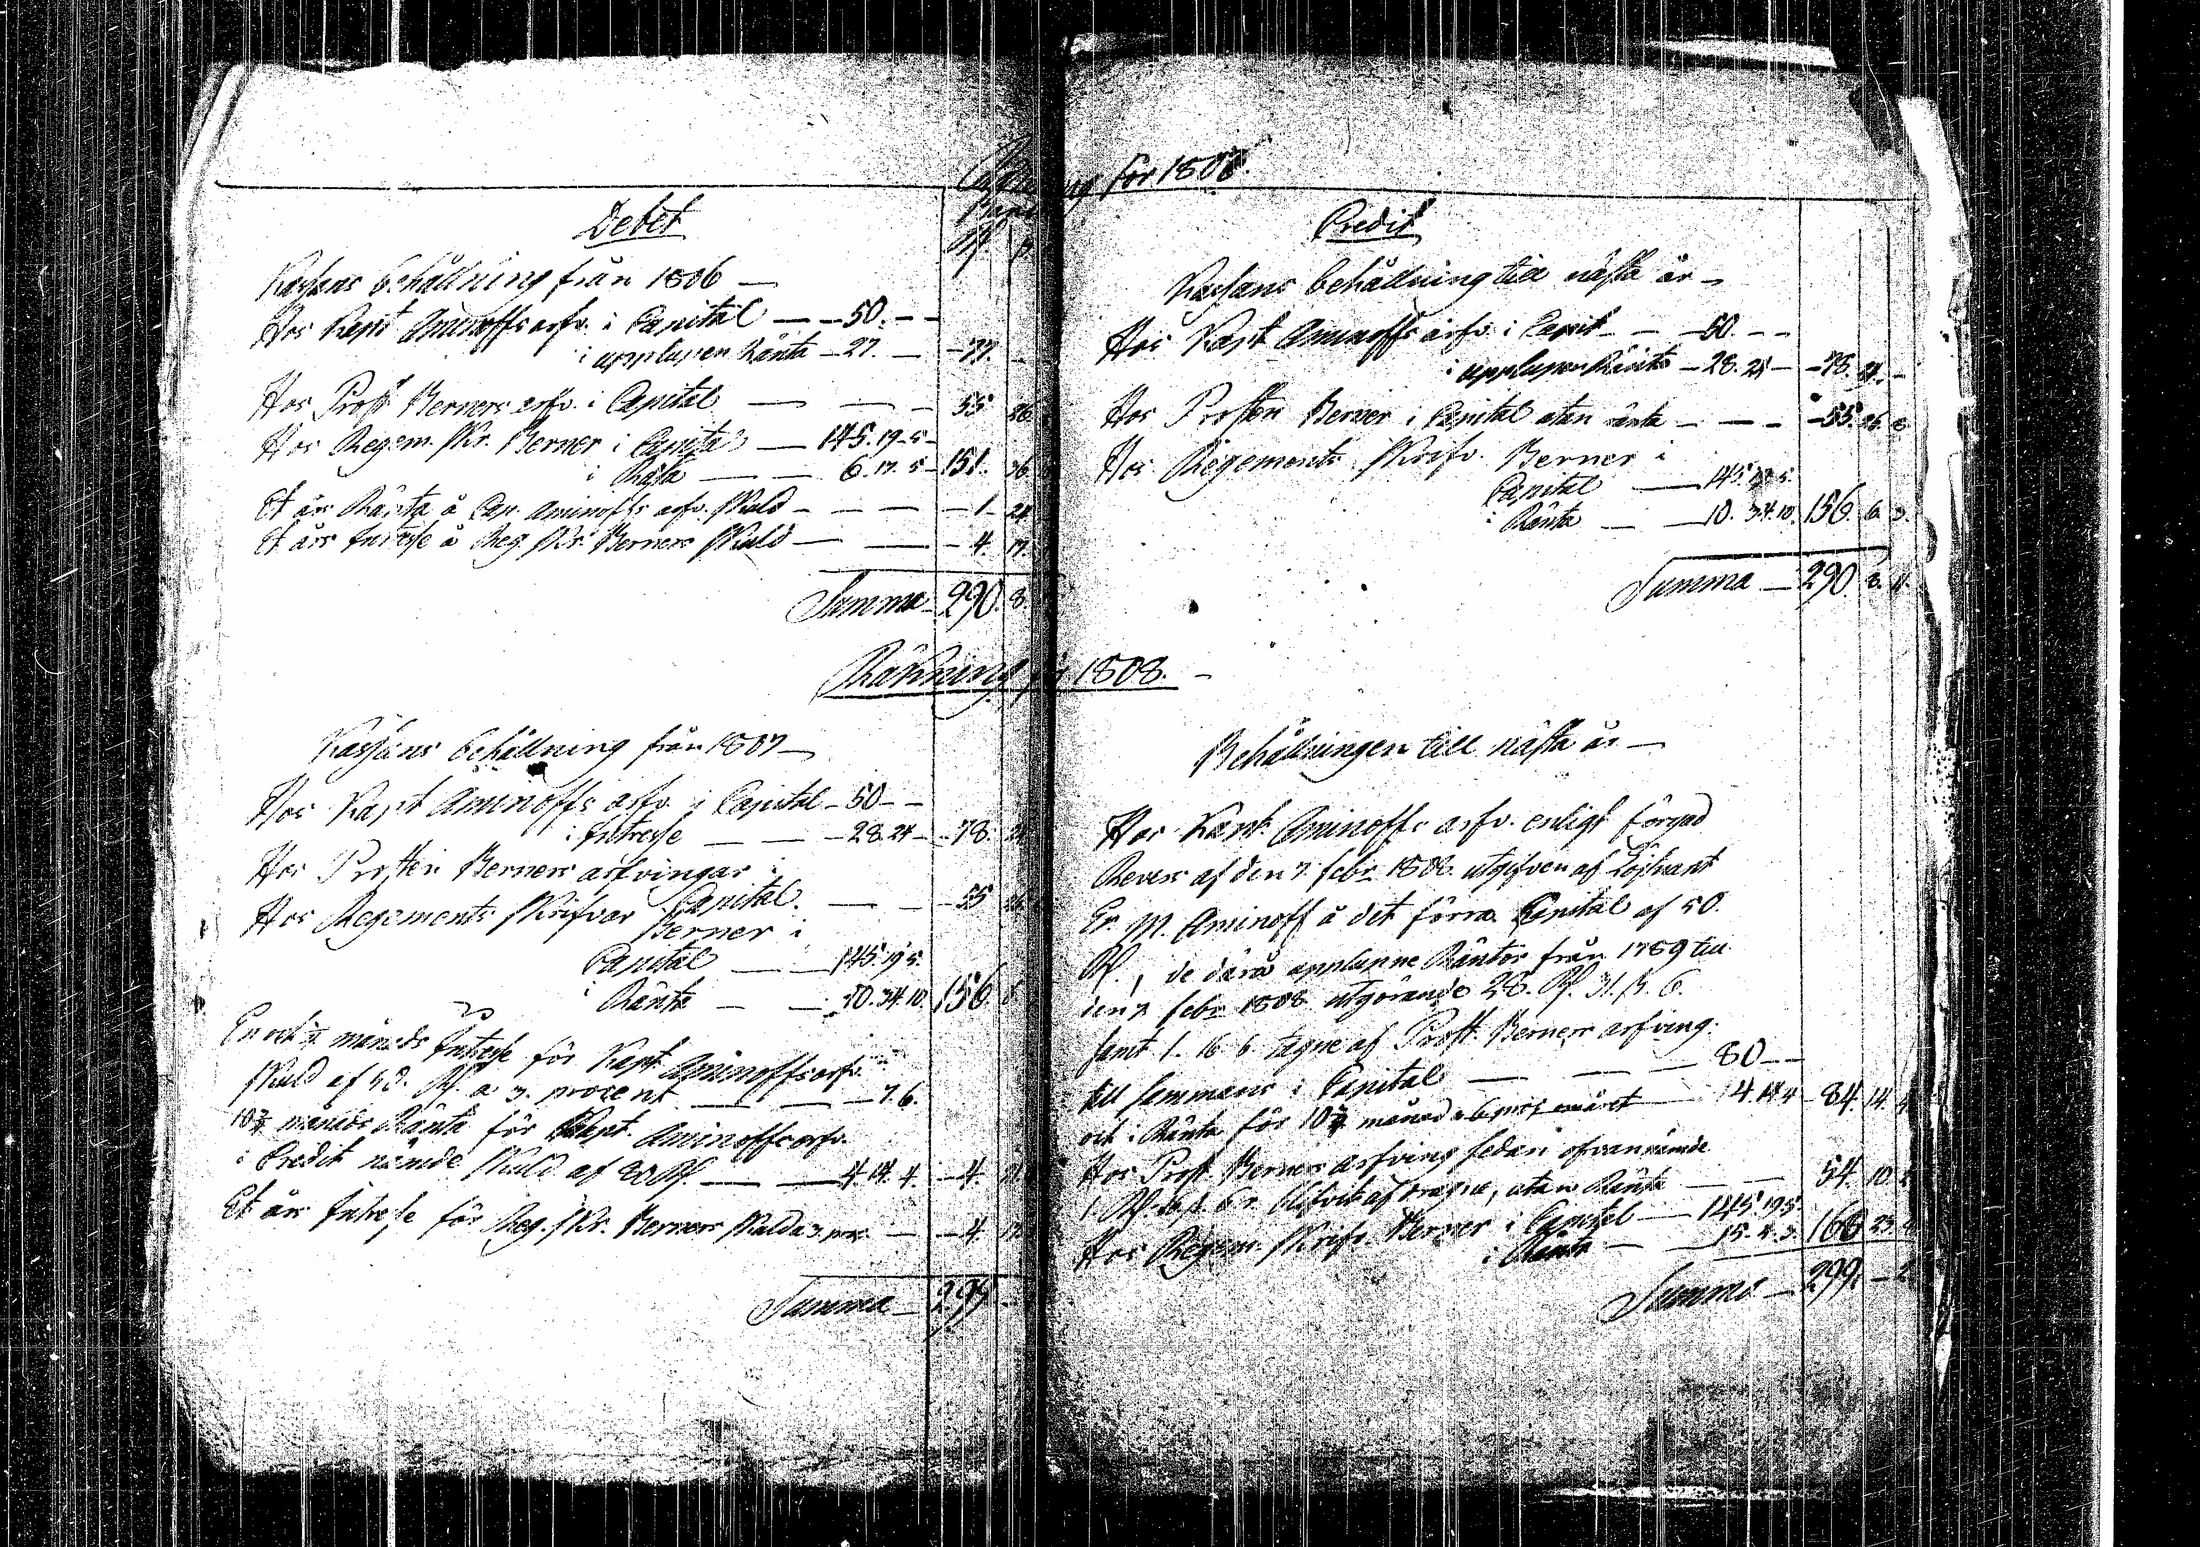 Räkning för 1807.
Debet
Rd
Kassans behållning från 1806 —
Hos Kapt Aminoffs arfv. i Capital — — 50. — —
i upplupen Ränta — 27. — — 77. —
Hos Prost Berners arfv. i Capital — — — 55 26
Hos Regem. Skr. Berner i Capital — 145. 19. 5 —
i Ränta — — 6. 17. 5 — 151. 36
Et års Ränta å Cap. Aminoffs arfv. Skuld — — — — 1 — 24
Et års Intresse å Reg. Skr. Berners Skuld — — — 4. 17.
Summa — 290. 8.
Credit
Kassans behållning till nästa år —
Hos Kapt Aminoffs arfv. i Capit — — 50. — —
i upplupen Ränta — 28. 24 — — 78. 24. —
Hos Prosten Berner i Capital utan ränta — — — — 55. 26. 8
Hos Regements Skrifv. Berner i
Capital — 145. 19. 5.
i Ränta — — 10. 34. 10. 156. 6. 3.
Summa — 290 8. 11.
Räkning för 1808. —
Kassans behållning från 1807 —
Hos Kapt Aminoffs arfv. i Capital — 50 — —
i Intresse — — — 28. 24 — — 78. 24
Hos Prosten Berners arfvingar i
Capital. — — — 55 26
Hos Regements Skrifvar Berner i
Capital — — 145. 19. 5.
i Ränta — — 10. 34. 10. 156. 6.
En och månads Intresse för Kapt. Aminoffs arfv.
Skuld af 50. Rd. a 3. procent — — — 7. 6.
10 månads Ränta för Kapt. Aminoffs arfv.
i Credit nämde Skuld af 80 Rd. — — 4. 14. 4. — 4.
Et års Intresse för Reg. Skr. Berners Skuld a 3. proc. — — 4. 17
Summa — 299 —
Behållningen till nästa år —
Hos Kapt. Aminoffs arfv. enligt förnyad
Revers af den 7. febr. 1808. utgifven af Löjtnant
Er. M. Aminoff å det förra Capital af 50.
Rd., de därå upplupne Räntor från 1789 till
den 7. febr. 1808 utgörande 28. Rd. 31. ß. 6.
samt 1. 16 6 tagne af Prost. Berners arfving.
till sammans i Capital — — — 80 — —
och i Ränta för 10 månad a 6 proc. om året — 4. 14. 4 — 84. 14. 4
Hos Prost. Berners arfving sedan ofvannämde
1 Rd. 16 ß. 6 r. blifvit afdragne, utan Ränta — — 54. 10. 2
Hos Regem. Skrifv. Berner i Capital — 145. 19. 5.
i Ränta — — 15. 4. 3. 160 23.
Summa — 299. — 2